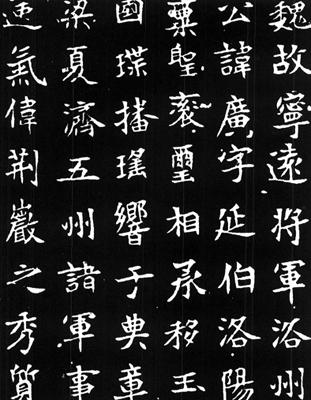 魏故寧遠將軍洛州
公諱廣字延伯洛陽
聖衮璽相承移玉
國播瑤響于典章
梁夏濟五州諸軍事
氣偉荆巖之秀質